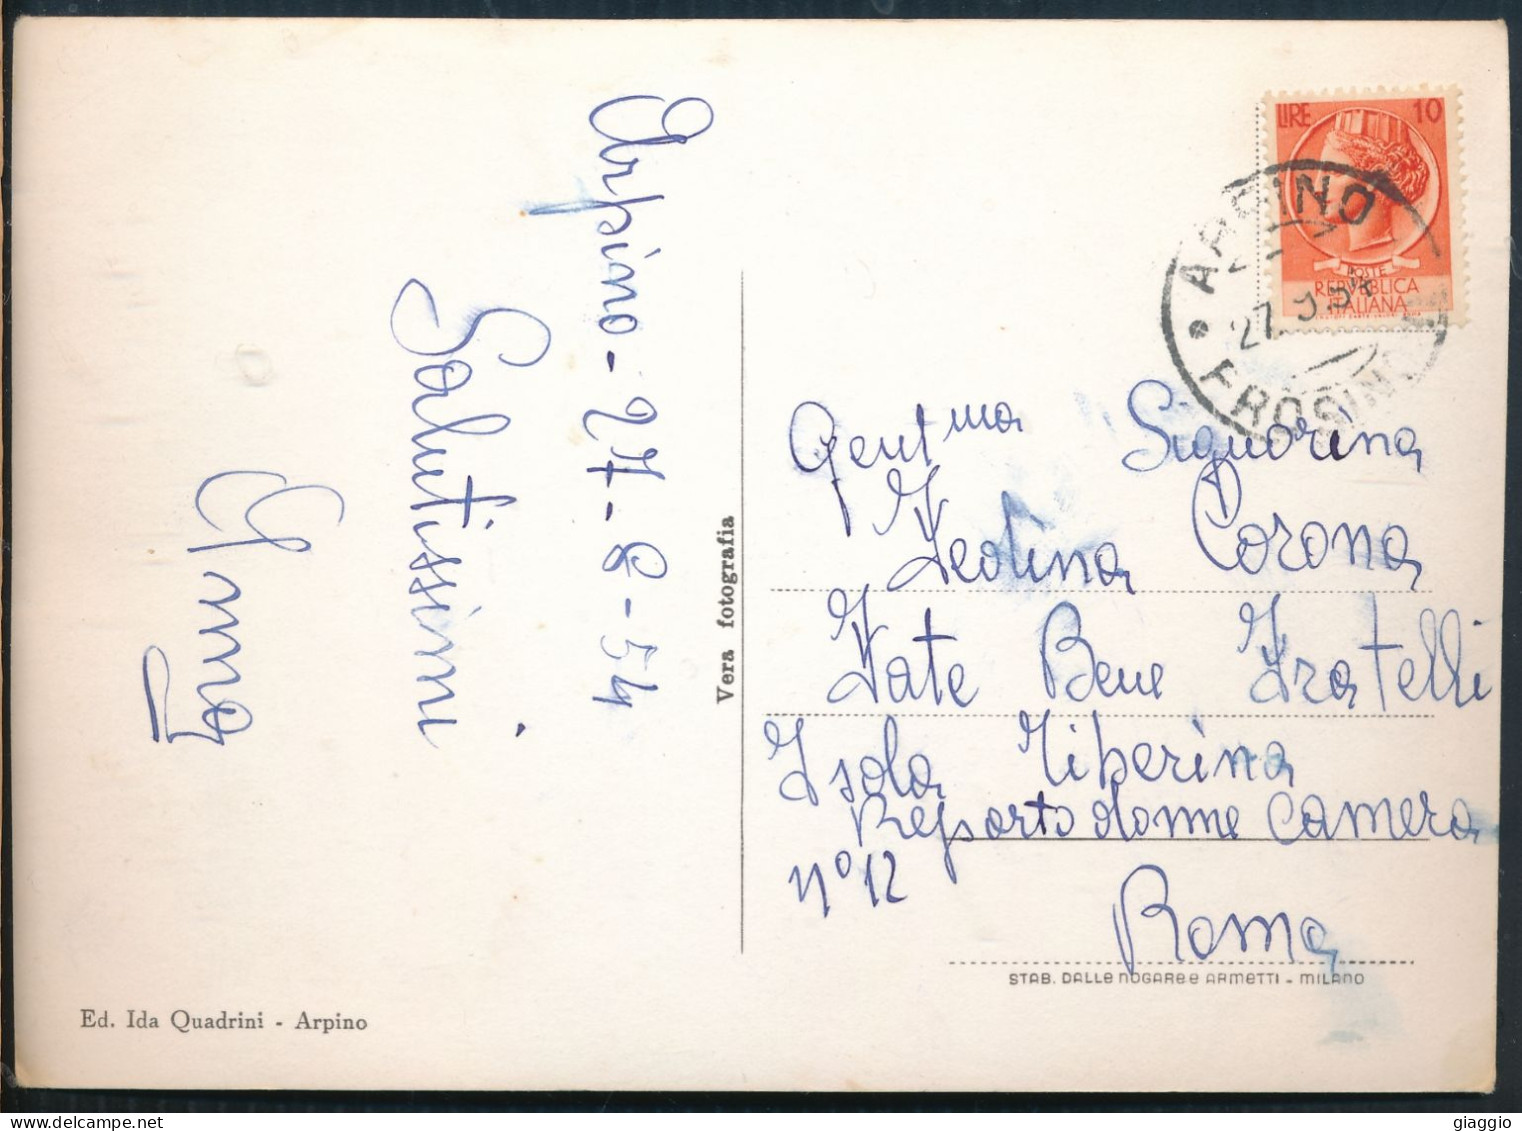 Arpino - 27 - 8 - 54
Salutissimi
LIRE 10
POSTE
REPVBBLICA
ITALIANA
ARPINO
27.9.54
FROSINONE
Gent.ma Signorina
Corona
Fate Bene Fratelli
Isola Tiberina
Reparto donne Camera
n° 12
Roma
Vera fotografia
STAB. DALLE NOGARE E ARMETTI - MILANO
Ed. Ida Quadrini - Arpino
giaggio